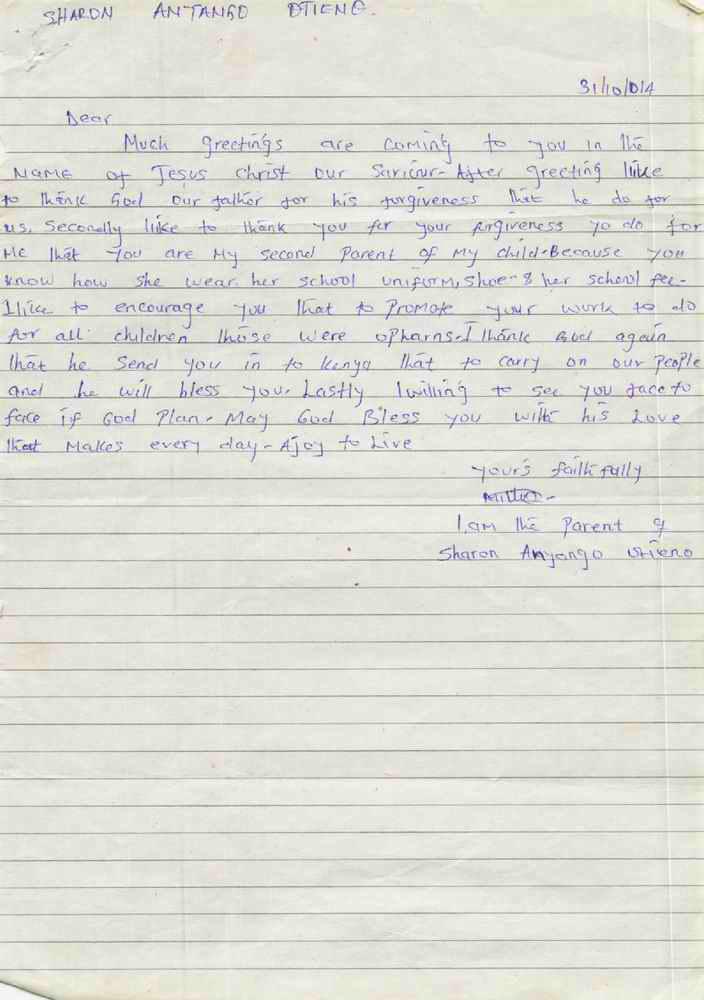 SHARON ANTANGO OTIENO.
31/10/014
Dear
Much greetings are coming to you in the
NAME of JESUS Christ our Saviour. After greeting I like
to thank God our father for his forgiveness that he do for
us. Secondly I like to thank you for your forgiveness yo do for
Me that you are My second Parent of My child. Because you
know how she wear her school uniform, shoe & her school fee.
I like to encourage you that to Promote your work to do
for all children those were opharns. I thank God again
that he send you in to Kenya that to carry on our People
and he will bless you. Lastly I willing to see you face to
face if God Plan. May God Bless you with his Love
that Makes every day - A joy to Live
yours faithfully
I am the Parent of
Sharon Anyango Otieno